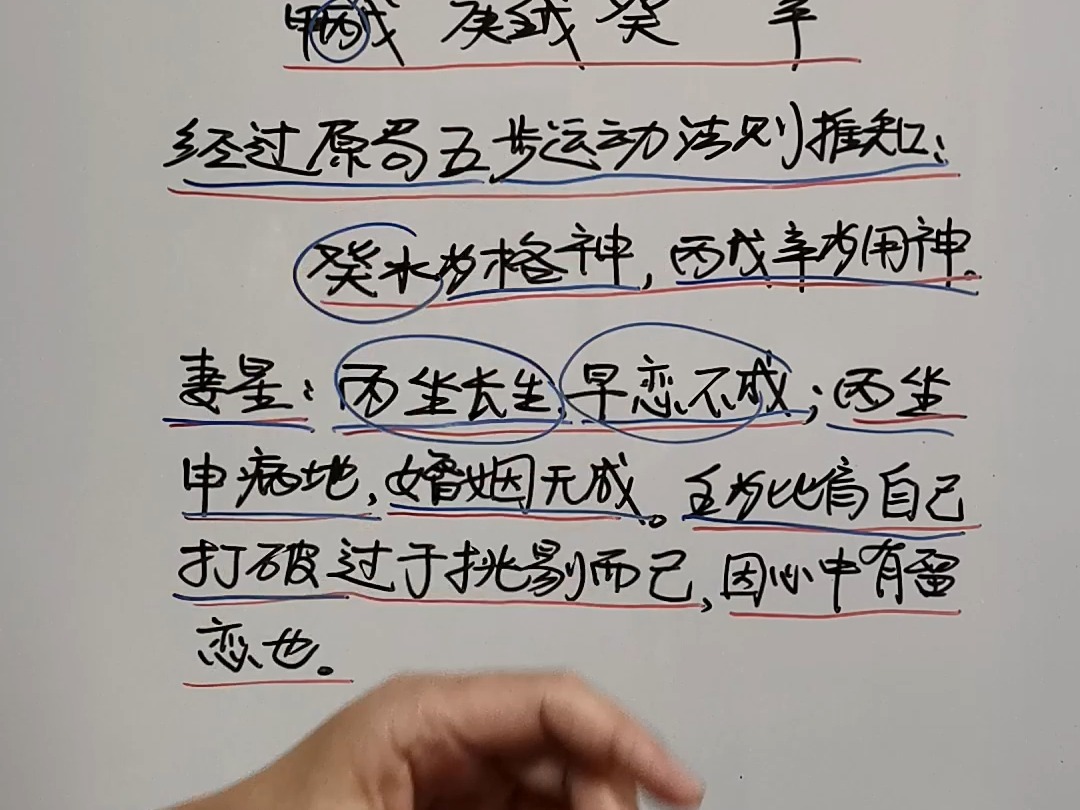 甲丙戊 庚壬戊 癸 辛
经过原局五步运动法则推知:
癸水为格神,丙戊辛为用神。
妻星:丙坐长生,早恋不成;丙坐
申病地,婚姻无成。壬为比肩自己
打破过于挑剔而己,因心中有留
恋也。